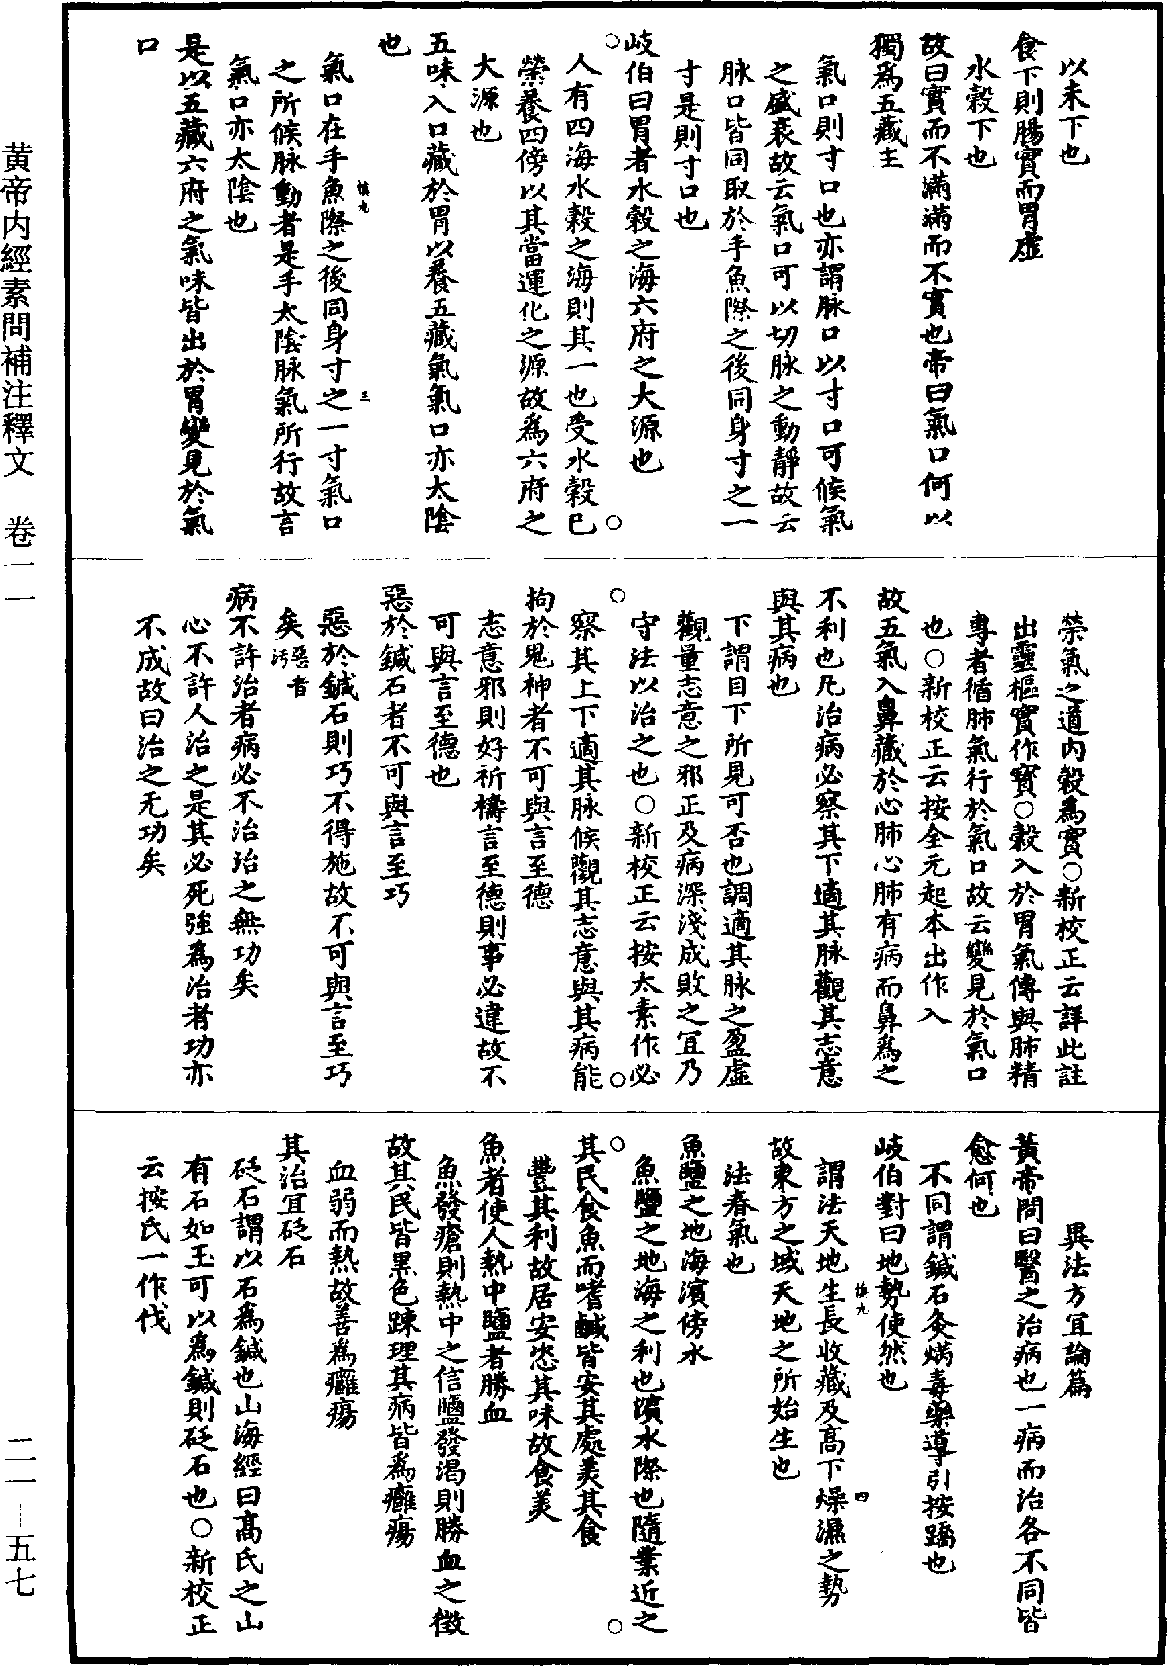 以未下也
食下則腸實而胃虛
水穀下也
故曰實而不滿滿而不實也帝曰氣口何以
獨爲五藏主
氣口則寸口也亦謂脉口以寸口可候氣
之盛衰故云氣口可以切脉之動靜故云
脉口皆同取於手魚際之後同身寸之一
寸是則寸口也
岐伯曰胃者水穀之海六府之大源也
○人有四海水穀之海則其一也受水穀已○
榮養四傍以其當運化之源故爲六府之
大源也
五味入口藏於胃以養五藏氣氣口亦太陰
也
氣口在手魚際之後同身寸之一寸氣口
之所候脉動者是手太陰脉氣所行故言
氣口亦太陰也
是以五藏六府之氣味皆出於胃變見於氣
口
榮氣之道內穀爲實○新校正云詳此註
出靈樞實作寶○穀入於胃氣傳與肺精
專者循肺氣行於氣口故云變見於氣口
也○新校正云按全元起本出作入
故五氣入鼻藏於心肺心肺有病而鼻爲之
不利也凡治病必察其下適其脉觀其志意
與其病也
下謂目下所見可否也調適其脉之盈虛
觀量志意之邪正及病深淺成敗之宜乃
守法以治之也○新校正云按太素作必
○察其上下適其脉候觀其志意與其病能○
拘於鬼神者不可與言至德
志意邪則好祈禱言至德則事必違故不
可與言至德也
惡於鍼石者不可與言至巧
惡於鍼石則巧不得施故不可與言至巧
矣惡音汚
病不許治者病必不治治之無功矣
心不許人治之是其必死強爲治者功亦
不成故曰治之无功矣
異法方宜論篇
黃帝問曰醫之治病也一病而治各不同皆
愈何也
不同謂鍼石灸焫毒藥導引按蹻也
岐伯對曰地勢使然也
謂法天地生長收藏及高下燥濕之勢
故東方之域天地之所始生也
法春氣也
魚鹽之地海濱傍水
魚鹽之地海之利也濱水際也隨業近之
○其民食魚而嗜鹹皆安其處美其食○
豐其利故居安恣其味故食美
魚者使人熱中鹽者勝血
魚發瘡則熱中之信鹽發渴則勝血之徵
故其民皆黑色踈理其病皆爲癰瘍
血弱而熱故善爲癰瘍
其治宜砭石
砭石謂以石爲鍼也山海經曰高氏之山
有石如玉可以爲鍼則砭石也○新校正
云按氏一作伐
黃帝内經素問補注釋文 卷一一
二一—五七
慎九
三
慎九
四